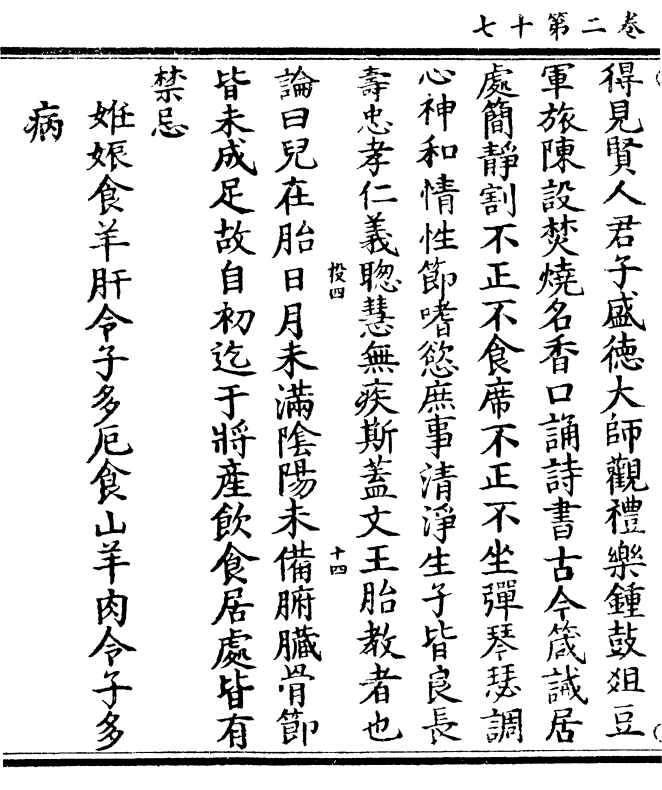 卷二第十七
得見賢人君子盛徳大師觀禮樂鍾鼓爼豆
軍旅陳設焚燒名香口誦詩書古今箴誡居
處簡靜割不正不食席不正不坐彈琴瑟調
心神和情性節嗜慾庶事清淨生子皆良長
壽忠孝仁義聦慧無疾斯蓋文王胎教者也
投四
十四
論曰兒在胎日月未滿陰陽未備腑臓骨節
皆未成足故自初迄于將產飲食居處皆有
禁忌
姙娠食羊肝令子多厄食山羊肉令子多
病